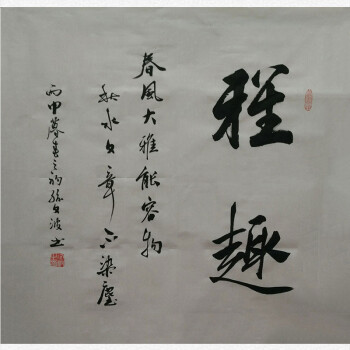 雅趣
春風大雅能容物
秋水文章不染塵
丙申暮春之初孫文波书